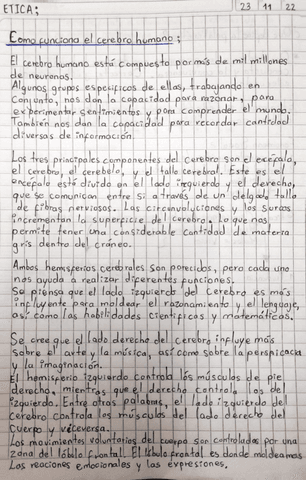 ETICA; 23 11 22
Como funciona el cerebro humano;
El cerebro humano está compuesto por más de mil millones
de neuronas.
Algunos grupos específicos de ellas, trabajando en
conjunto, nos dan la capacidad para razonar, para
experimentar sentimientos y para comprender el mundo.
También nos dan la capacidad para recordar cantidad
diversas de información.
Los tres principales componentes del cerebro son el encéfalo,
el cerebro, el cerebelo, y el tallo cerebral. Este es el
encéfalo está dividido en el lado izquierdo y el derecho,
que se comunican entre sí a través de un delgado tallo
de fibras nerviosas. Las circunvoluciones y los surcos
incrementan la superficie del cerebro, lo que nos
permite tener una considerable cantidad de materia
gris dentro del cráneo.
Ambos hemisferios cerebrales son parecidos, pero cada uno
nos ayuda a realizar diferentes funciones.
Se piensa que el lado izquierdo del Cerebro es más
influyente para moldear el razonamiento y el lenguaje,
así como las habilidades científicas y matemáticas.
Se cree que el lado derecho del cerebro influye más
sobre el arte y la música, así como sobre la perspicacia
y la imaginación.
El hemisferio izquierdo controla los músculos de pie
derecho, mientras que el derecho controla los del
izquierdo. Entre otras palabras, el lado izquierdo del
cerebro controla los músculos del lado derecho del
cuerpo y viceversa.
Los movimientos voluntarios del cuerpo son controlados por una
zona del lóbulo frontal. El lóbulo frontal es donde moldeamos
Las reacciones emocionales y las expresiones.